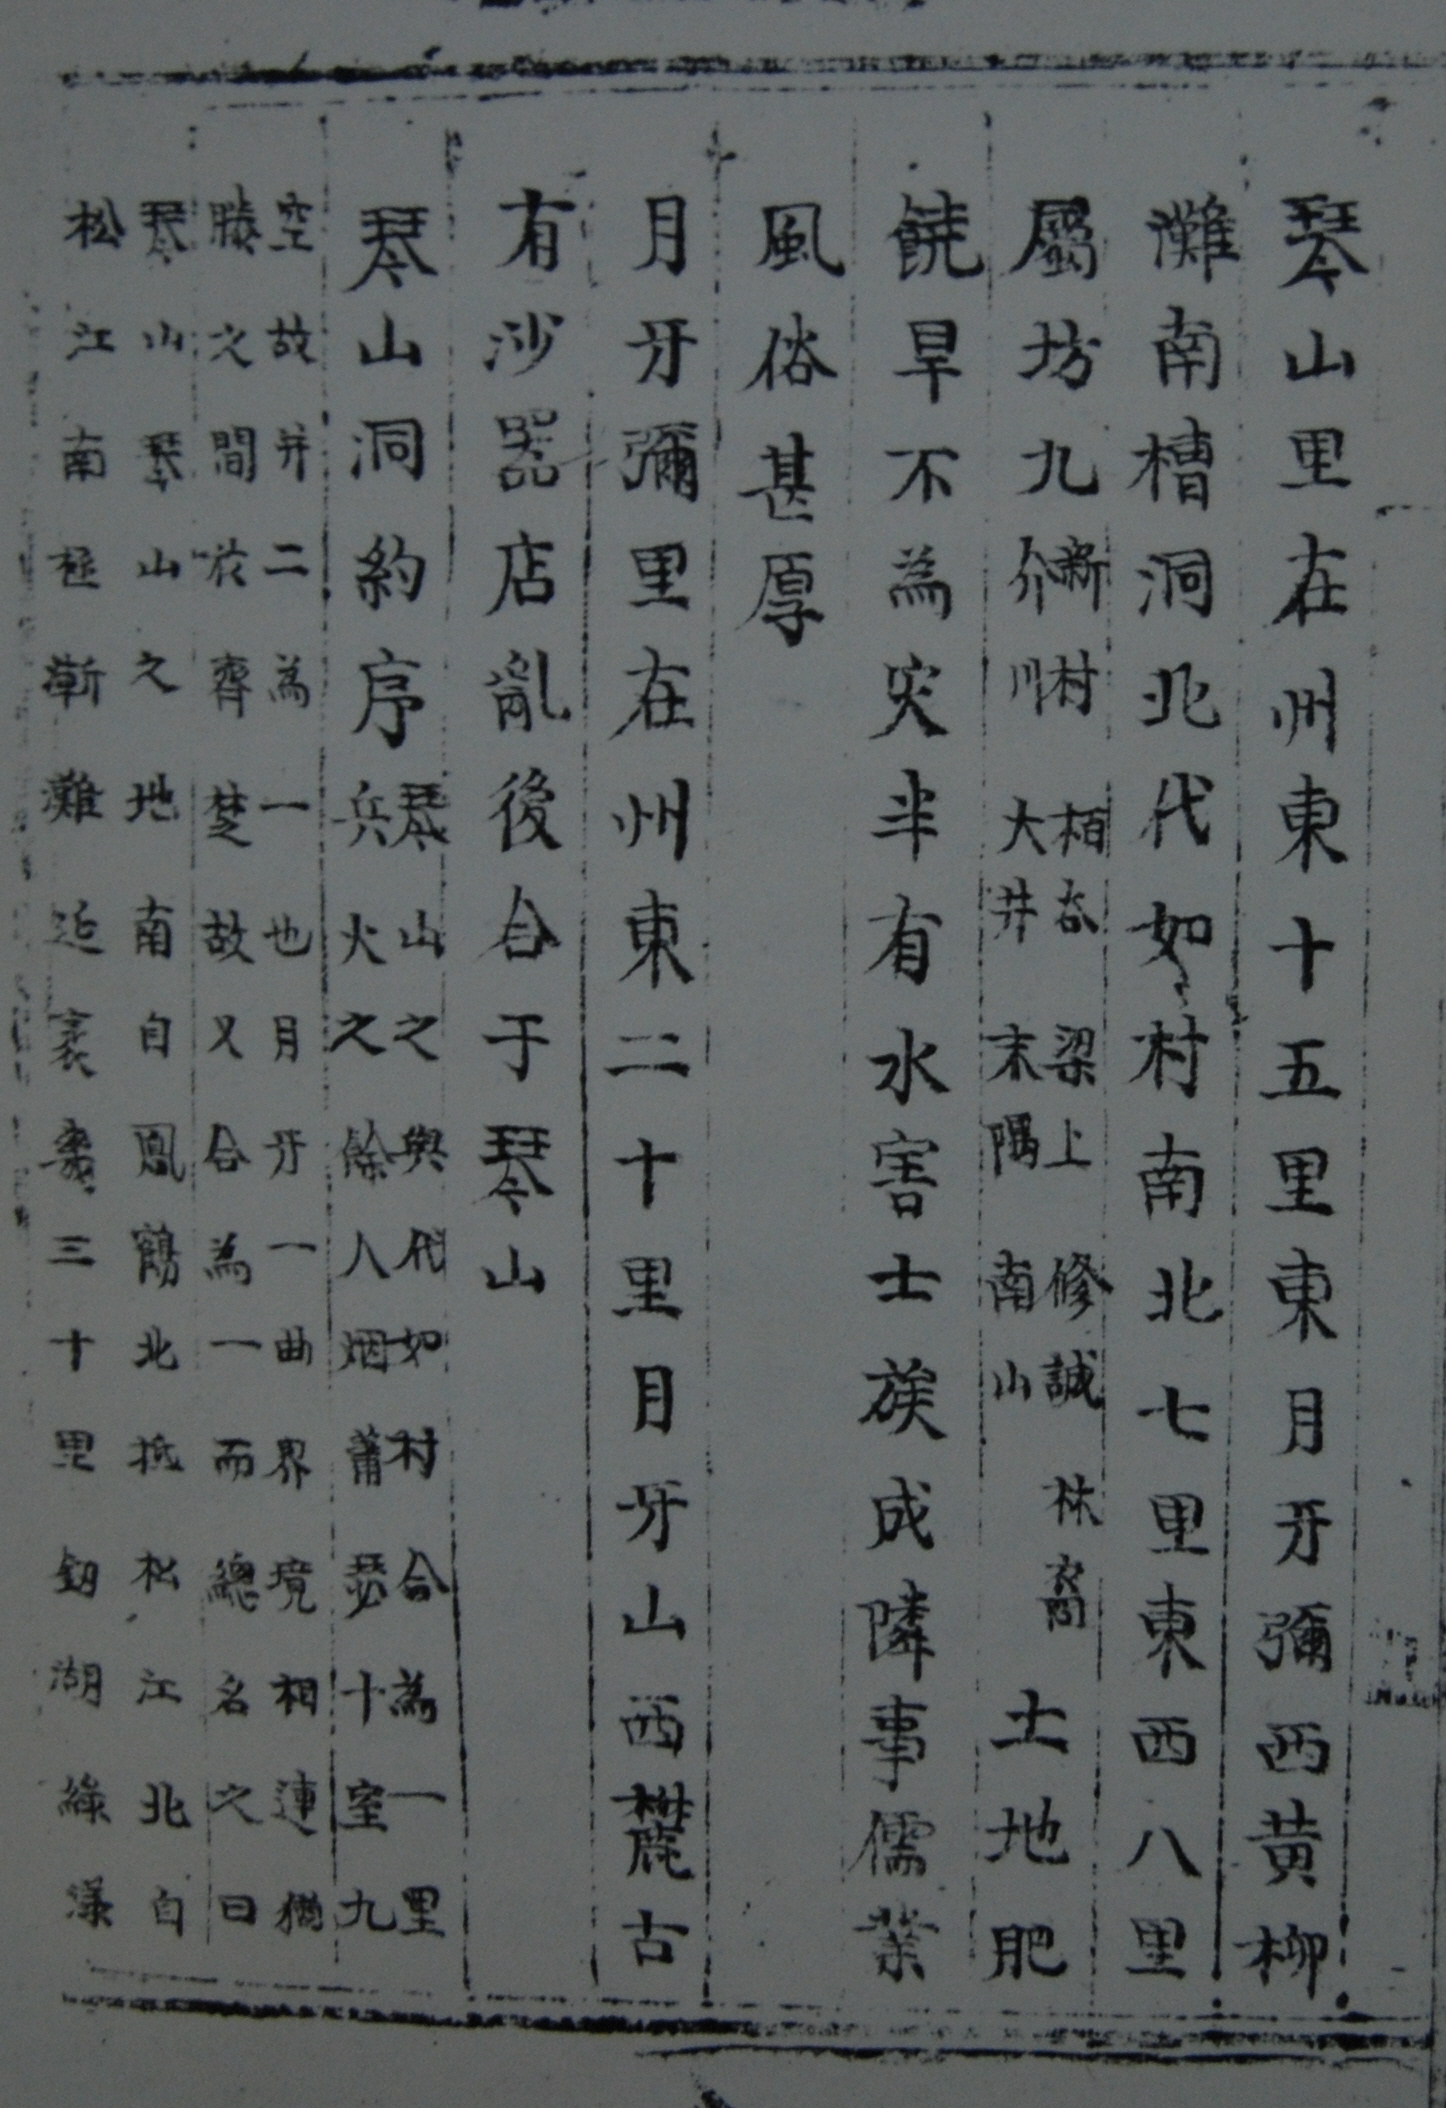 琴山里在州東十五里東月牙彌西黃柳
灘南槽洞北代如村南北七里東西八里
屬坊九新村介川栢谷大井梁上末隅修誠南山林裔土地肥
饒旱不為灾半有水害士族成隣事儒業
風俗甚厚
月牙彌里在州東二十里月牙山西麓古
有沙器店亂後合于琴山
琴山洞約序琴山之與代如村合為一里
兵火之餘人烟蕭瑟十室九
空故并二為一也月牙一曲界境相連猶
滕之間於齊楚故又合為一而總名之曰
琴山琴山之地南自鳳鶴北抵松江北自
松江南極漸灘延袤三十里釰湖綠漾